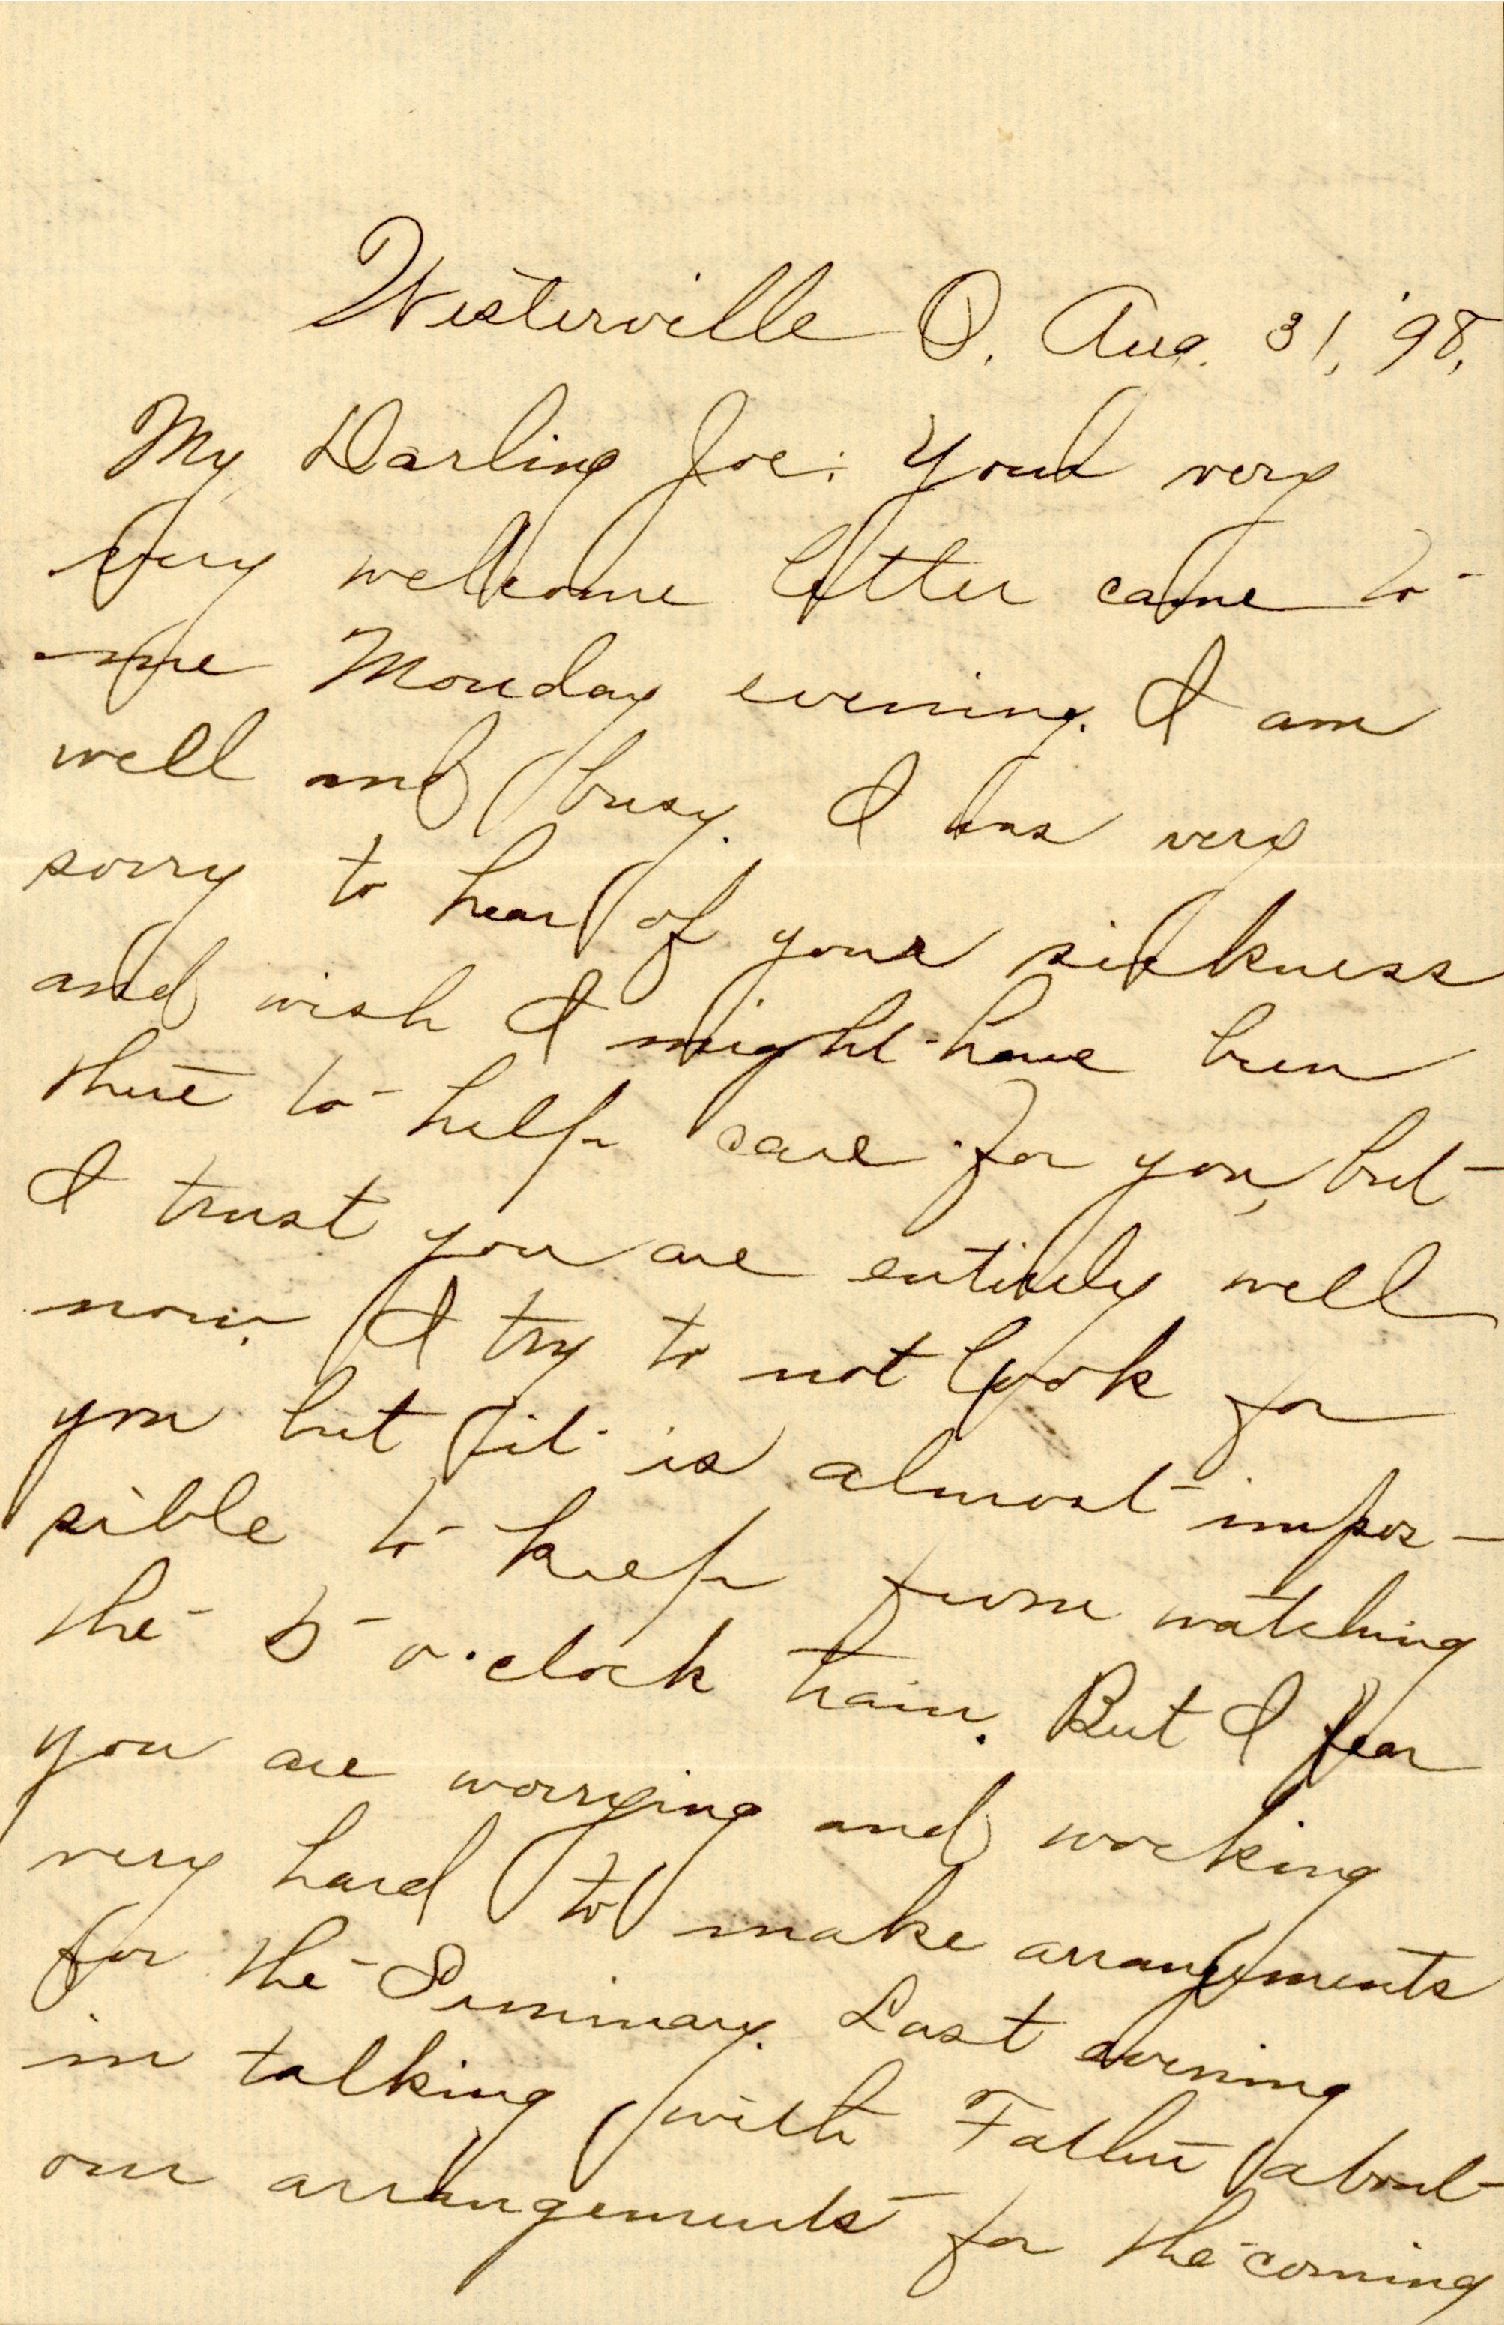 Westerville O. Aug. 31, '98,
My Darling Joe: Your very
very welcome letter came to
me Monday evening. I am
well and busy. I was very
sorry to hear of your sickness
and wish I might have been
there to help care for you, but
I trust you are entirely well
now. I try to not look for
you but it is almost impos-
sible to keep from watching
the 5 o'clock train. But I fear
you are worrying and working
very hard to make arrangements
for the Seminary. Last evening
in talking with Father about
our arrangements for the coming